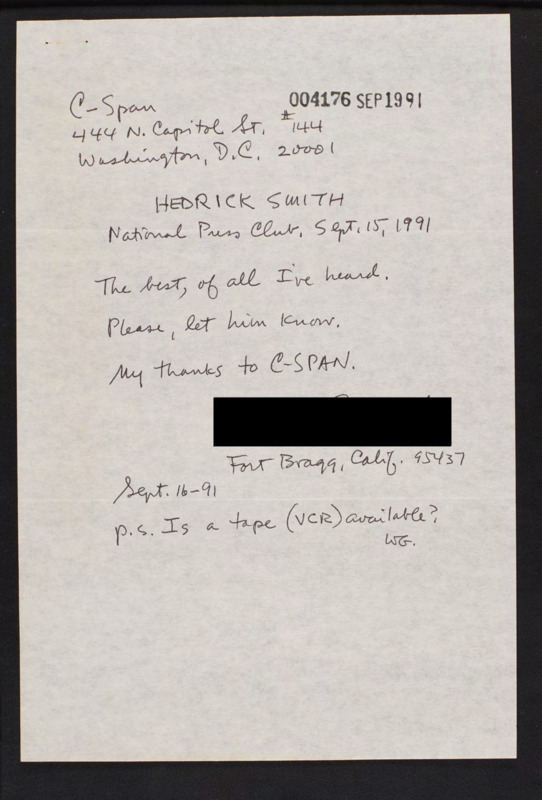 C-Span
004176 SEP 1991
444 N. Capitol St. #144
Washington, D.C. 20001
HEDRICK SMITH
National Press Club, Sept. 15, 1991
The best, of all I've heard.
Please, let him know.
My thanks to C-SPAN.
Fort Bragg, Calif. 95437
Sept. 16-91
p.s. Is a tape (VCR) available?
WG.